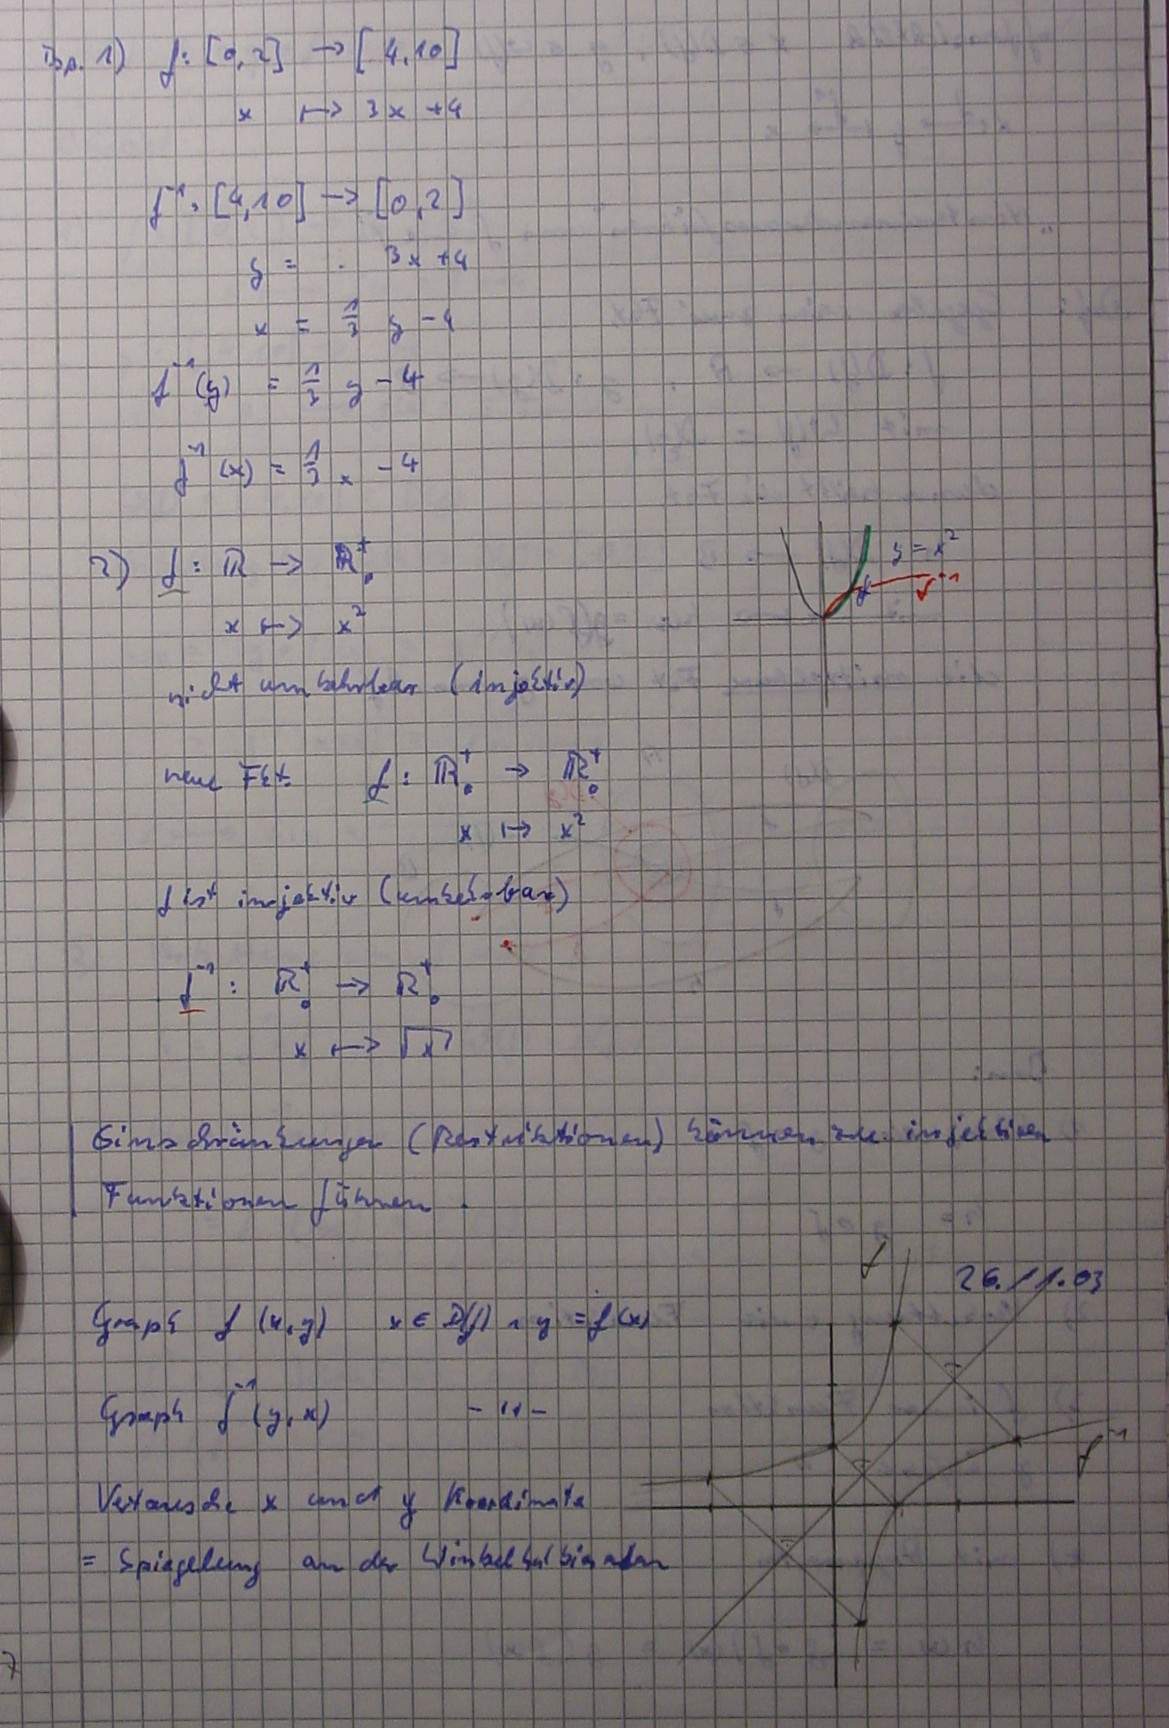 Bsp. 1) f: [0,2] → [4,10]
x ↦ 3x + 4
f⁻¹: [4,10] → [0,2]
y = 3x + 4
x = 1/3 y - 4
f⁻¹(y) = 1/3 y - 4
f⁻¹(x) = 1/3 x - 4
2) f: ℝ → ℝ₀⁺
x ↦ x²
y = x²
f
f⁻¹
nicht umkehrbar (injektiv)
neue Fkt. f: ℝ₀⁺ → ℝ₀⁺
x ↦ x²
f ist injektiv (umkehrbar)
f⁻¹: ℝ₀⁺ → ℝ₀⁺
x ↦ √x
Einschränkungen (Restriktionen) können zu injektiven
Funktionen führen.
f
26.11.03
Graph f (x,y) x ∈ D(f) ∧ y = f(x)
Graph f⁻¹ (y,x) - " -
f⁻¹
Vertausche x und y Koordinate
= Spiegelung an der Winkelhalbierenden
7